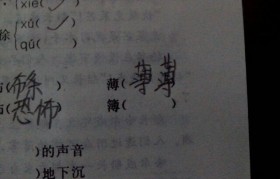 xiè(
徐 xú( )
qú( )
(布条) 薄(薄薄)
(恐怖) 簿( )
)的声音
)地下沉